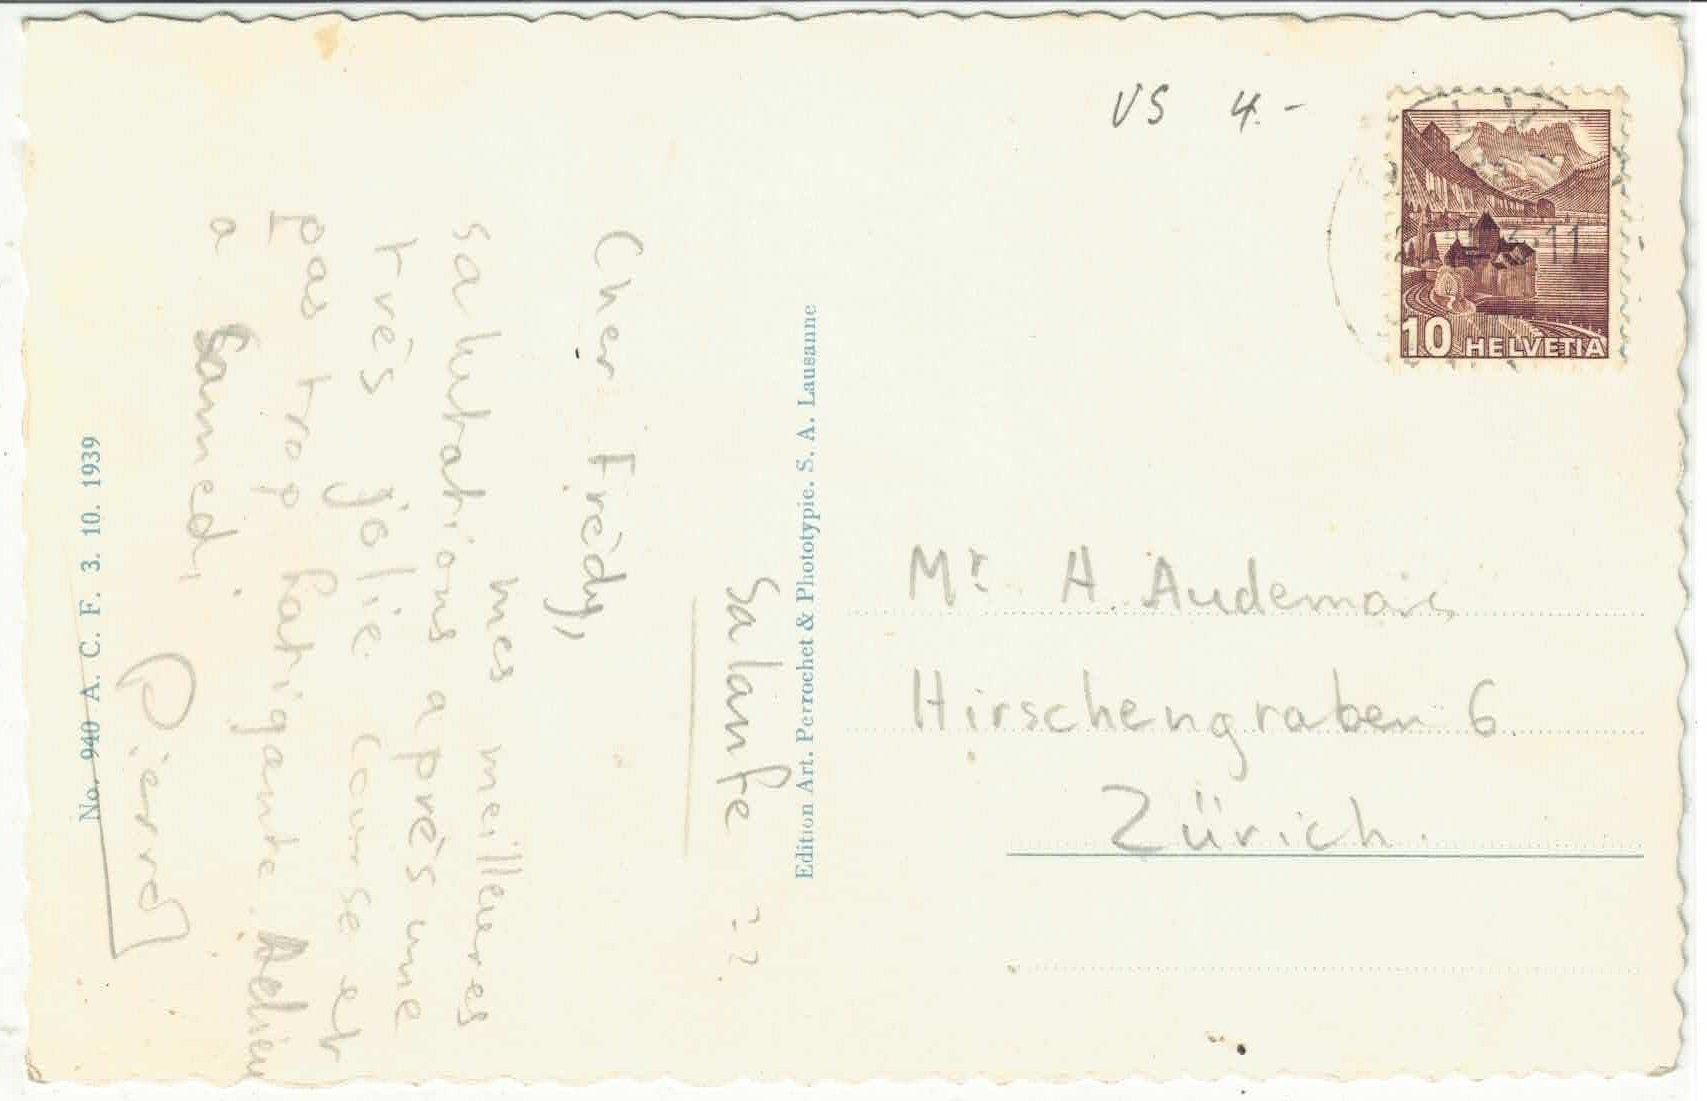 VS 4.-
10 HELVETIA
Salanfe ??
Cher Frédy,
mes meilleures
salutations après une
très jolie course et
pas trop fatigante. Adieu
a samedi.
Pierre
Edition Art. Perrochet & Phototypie. S. A. Lausanne
No. 940 A. C. F. 3. 10. 1939
Mr. A. Audemars
Hirschengraben 6.
Zürich.